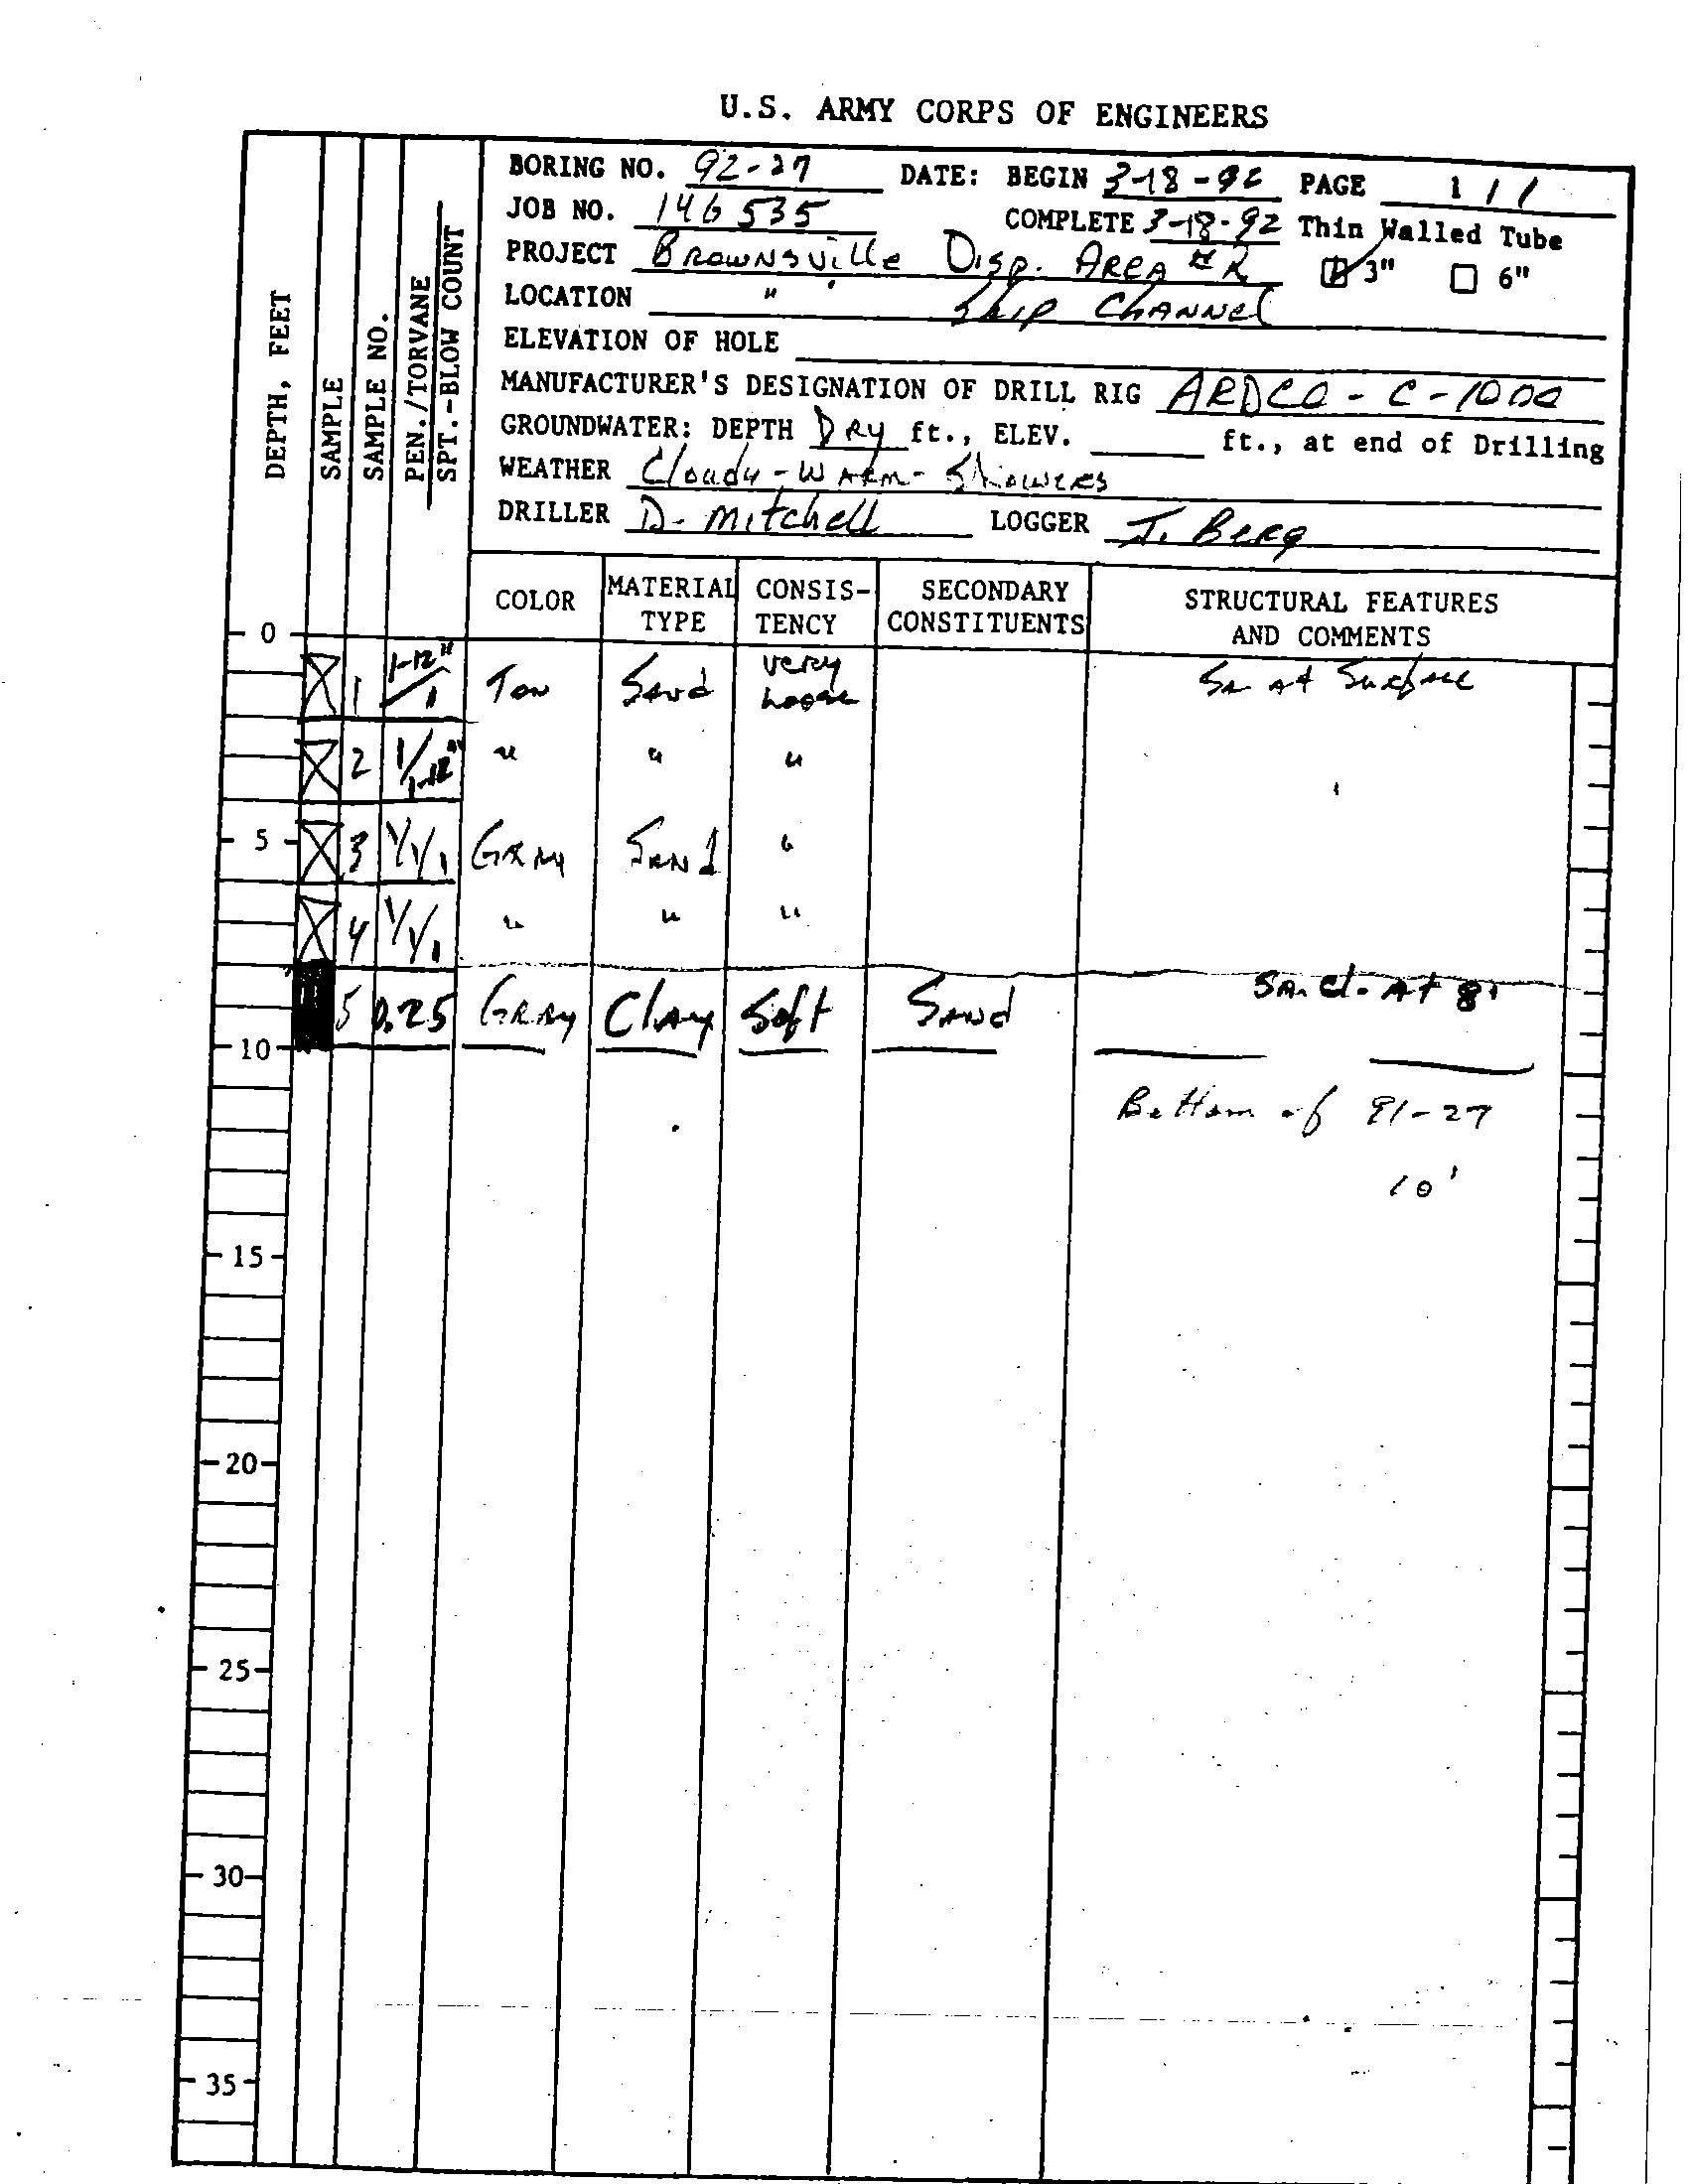 U.S. ARMY CORPS OF ENGINEERS
BORING NO. 92-27 DATE: BEGIN 3-18-92 PAGE 1 / 1
JOB NO. 146535 COMPLETE 3-18-92 Thin Walled Tube
PROJECT Brownsville Disp. Area #2 3" 6"
LOCATION " Ship Channel
ELEVATION OF HOLE
MANUFACTURER'S DESIGNATION OF DRILL RIG ARDCO - C-1000
GROUNDWATER: DEPTH DRy ft., ELEV. ft., at end of Drilling
WEATHER Cloudy - Warm - Showers
DRILLER D. Mitchell LOGGER J. Berg
DEPTH, FEET
SAMPLE
SAMPLE NO.
PEN./TORVANE
SPT.-BLOW COUNT
COLOR MATERIAL TYPE CONSIS-TENCY SECONDARY CONSTITUENTS STRUCTURAL FEATURES AND COMMENTS
0
1 1-12"/1 Tan Sand very loose Sa at Surface
2 1/1-12" " " "
5 3 1/1/1 Gray Sand "
4 1/1/1 " " "
5 0.25 Gray Clay Soft Sand Sa. Cl. At 8'
10
Bottom of 91-27
10'
15
20
25
30
35